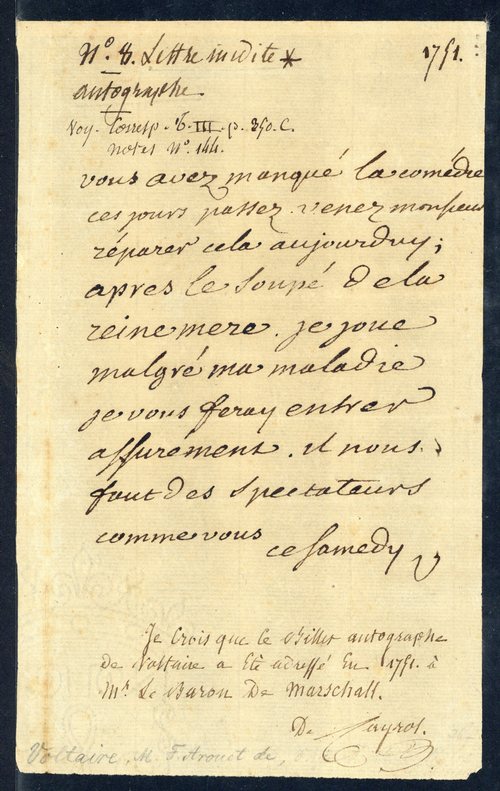 N.º 8. Lettre inédite * 1751.
autographe.
Voy. Corresp. T. III. p. 350. C.
Notes Nº. 144.
vous avez manqué la comédie
ces jours passez. venez monsieur
réparer cela aujourduy;
apres le soupé de la
reine mere. je joue
malgré ma maladie
je vous feray entrer
assurément. il nous
faut des spectateurs
comme vous
ce samedy V
Je Crois que le Billet autographe
de Voltaire a Eté adressé En 1751. à
Mr. Le Baron De Marschall.
De Cayrol.
Voltaire, M. F. Arouet de,